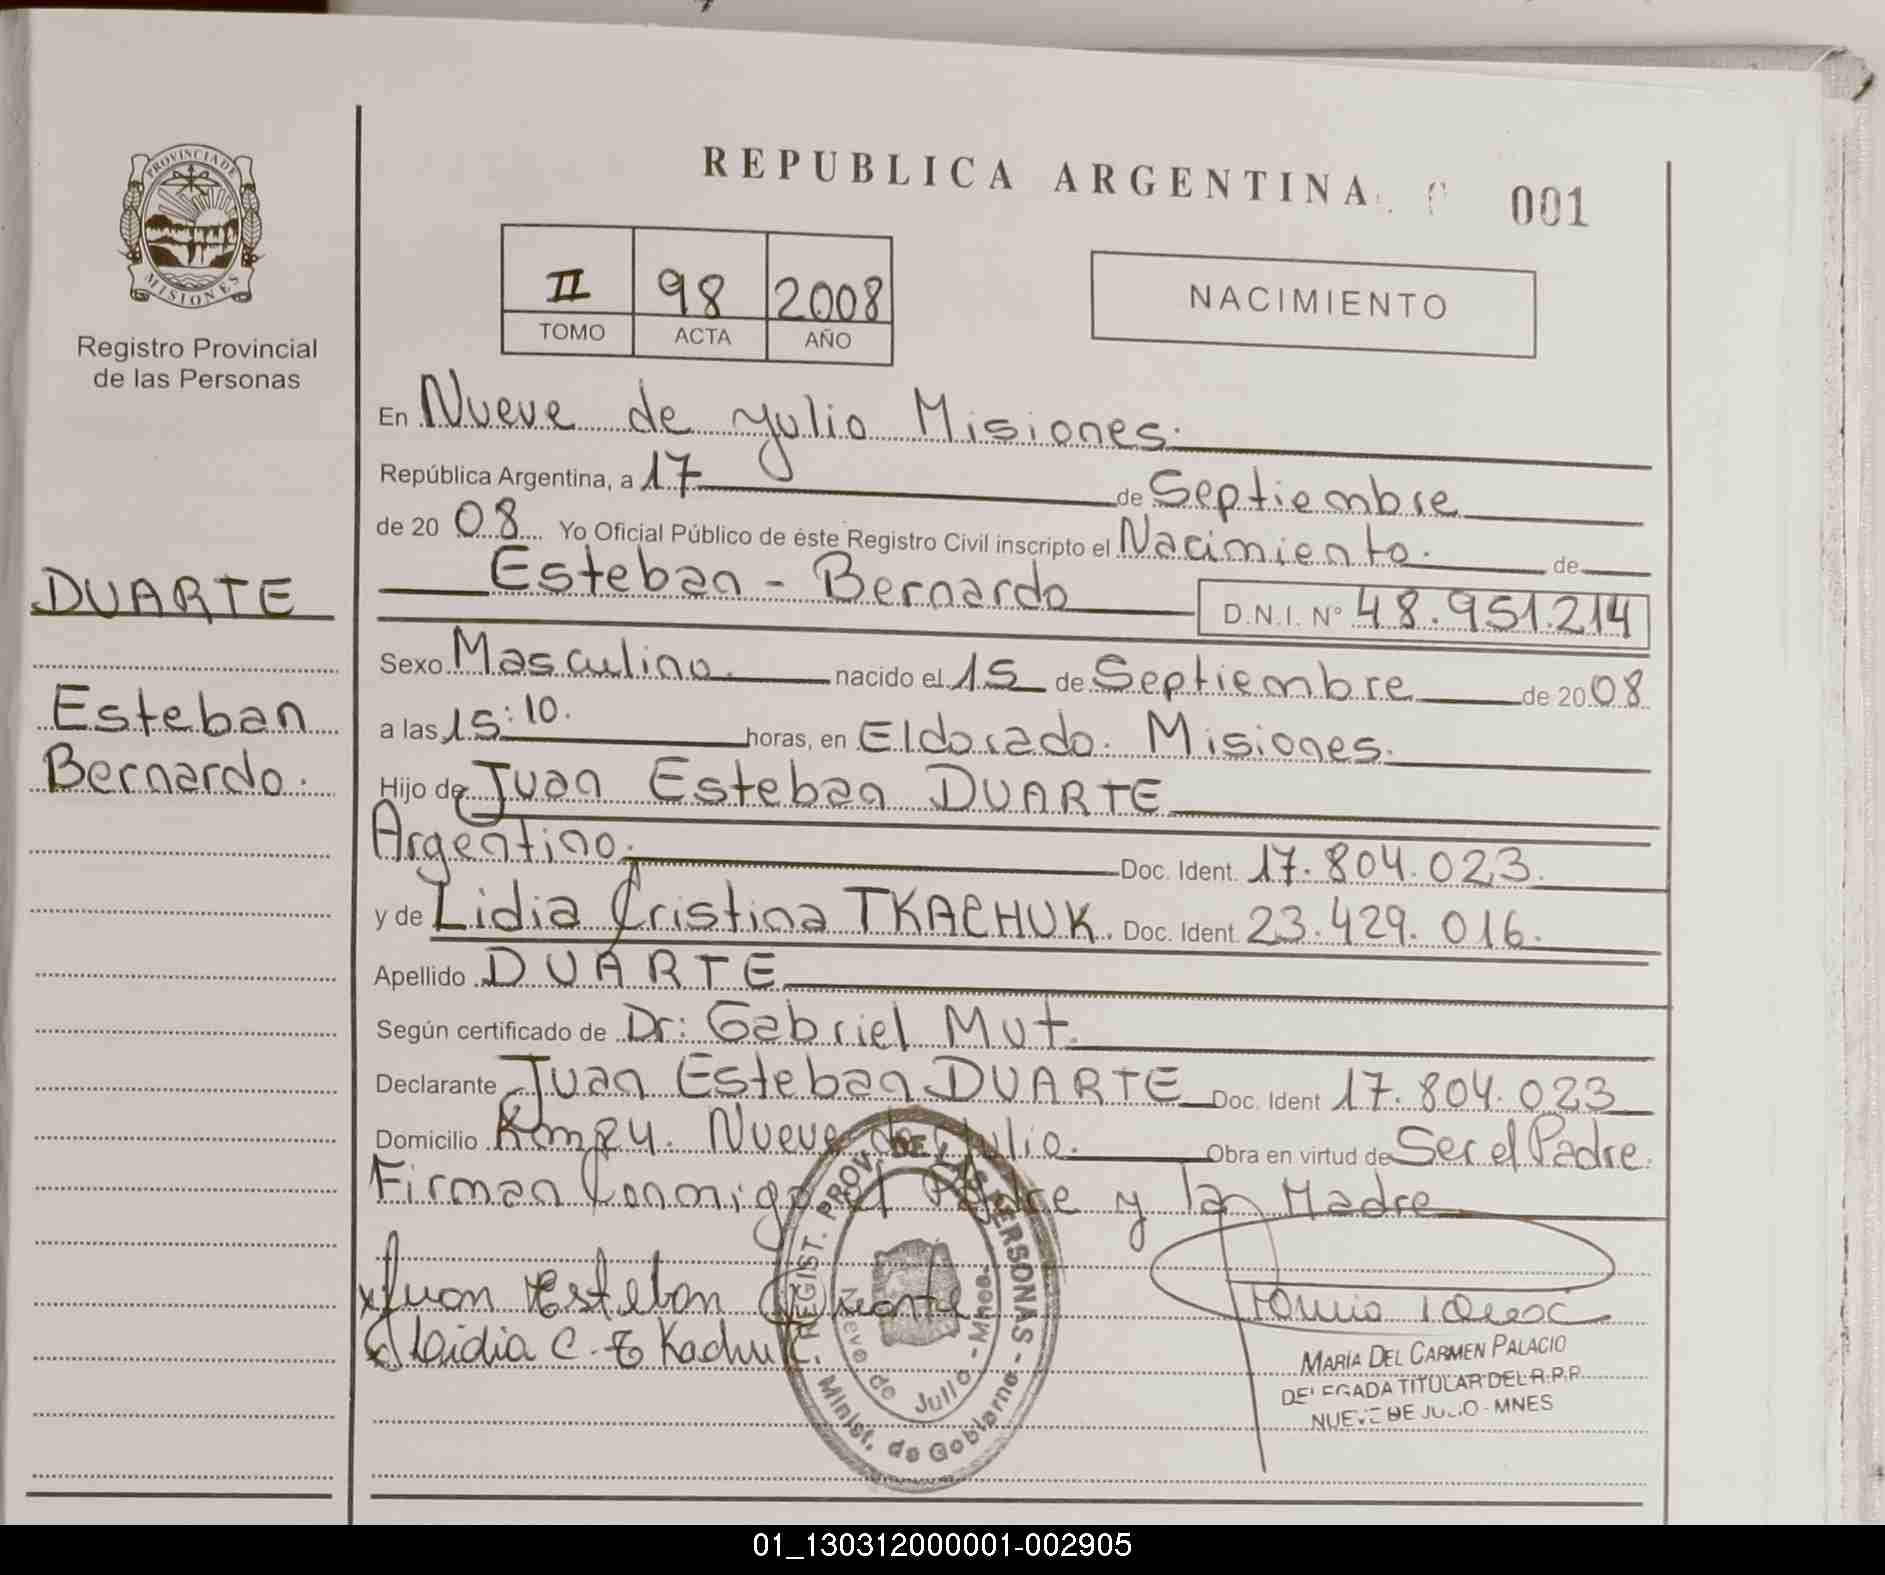 PROVINCIA DE
MISIONES
Registro Provincial
de las Personas
DUARTE
Esteban
Bernardo.
REPUBLICA ARGENTINA
001
II 98 2008
TOMO ACTA AÑO
NACIMIENTO
En Nueve de Julio Misiones.
República Argentina, a 17 de Septiembre
de 20 08 Yo Oficial Público de éste Registro Civil inscripto el Nacimiento. de
Esteban - Bernardo D.N.I. Nº 48.951.214
Sexo Masculino. nacido el 15 de Septiembre de 20 08
a las 15:10. horas, en Eldorado. Misiones.
Hijo de Juan Esteban DUARTE
Argentino. Doc. Ident. 17.804.023.
y de Lidia Cristina TKACHUK. Doc. Ident. 23.429.016.
Apellido DUARTE
Según certificado de Dr: Gabriel Mut.
Declarante Juan Esteban DUARTE Doc. Ident 17.804.023
Domicilio Nueve de Julio. Obra en virtud de Ser el Padre.
Firman Conmigo el Padre y la Madre
x Juan Esteban Duarte
Lidia C. Tkachuk
REGIST. PROV. DE LAS PERSONAS - Minist. de Gobierno -
Nueve de Julio - Mnes.
MARÍA DEL CARMEN PALACIO
DELEGADA TITULAR DEL R.P.P.
NUEVE DE JULIO - MNES
01_130312000001-002905